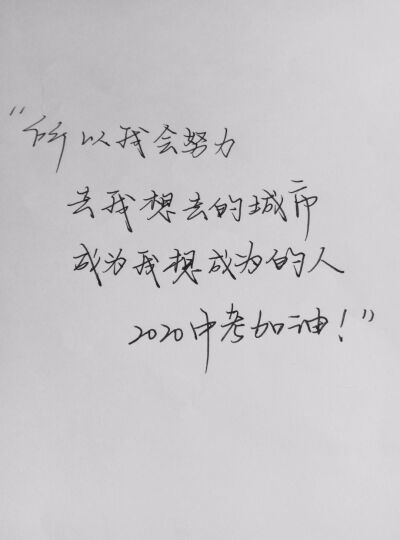 “所以我会努力
去我想去的城市
成为我想成为的人
2020中考加油！”